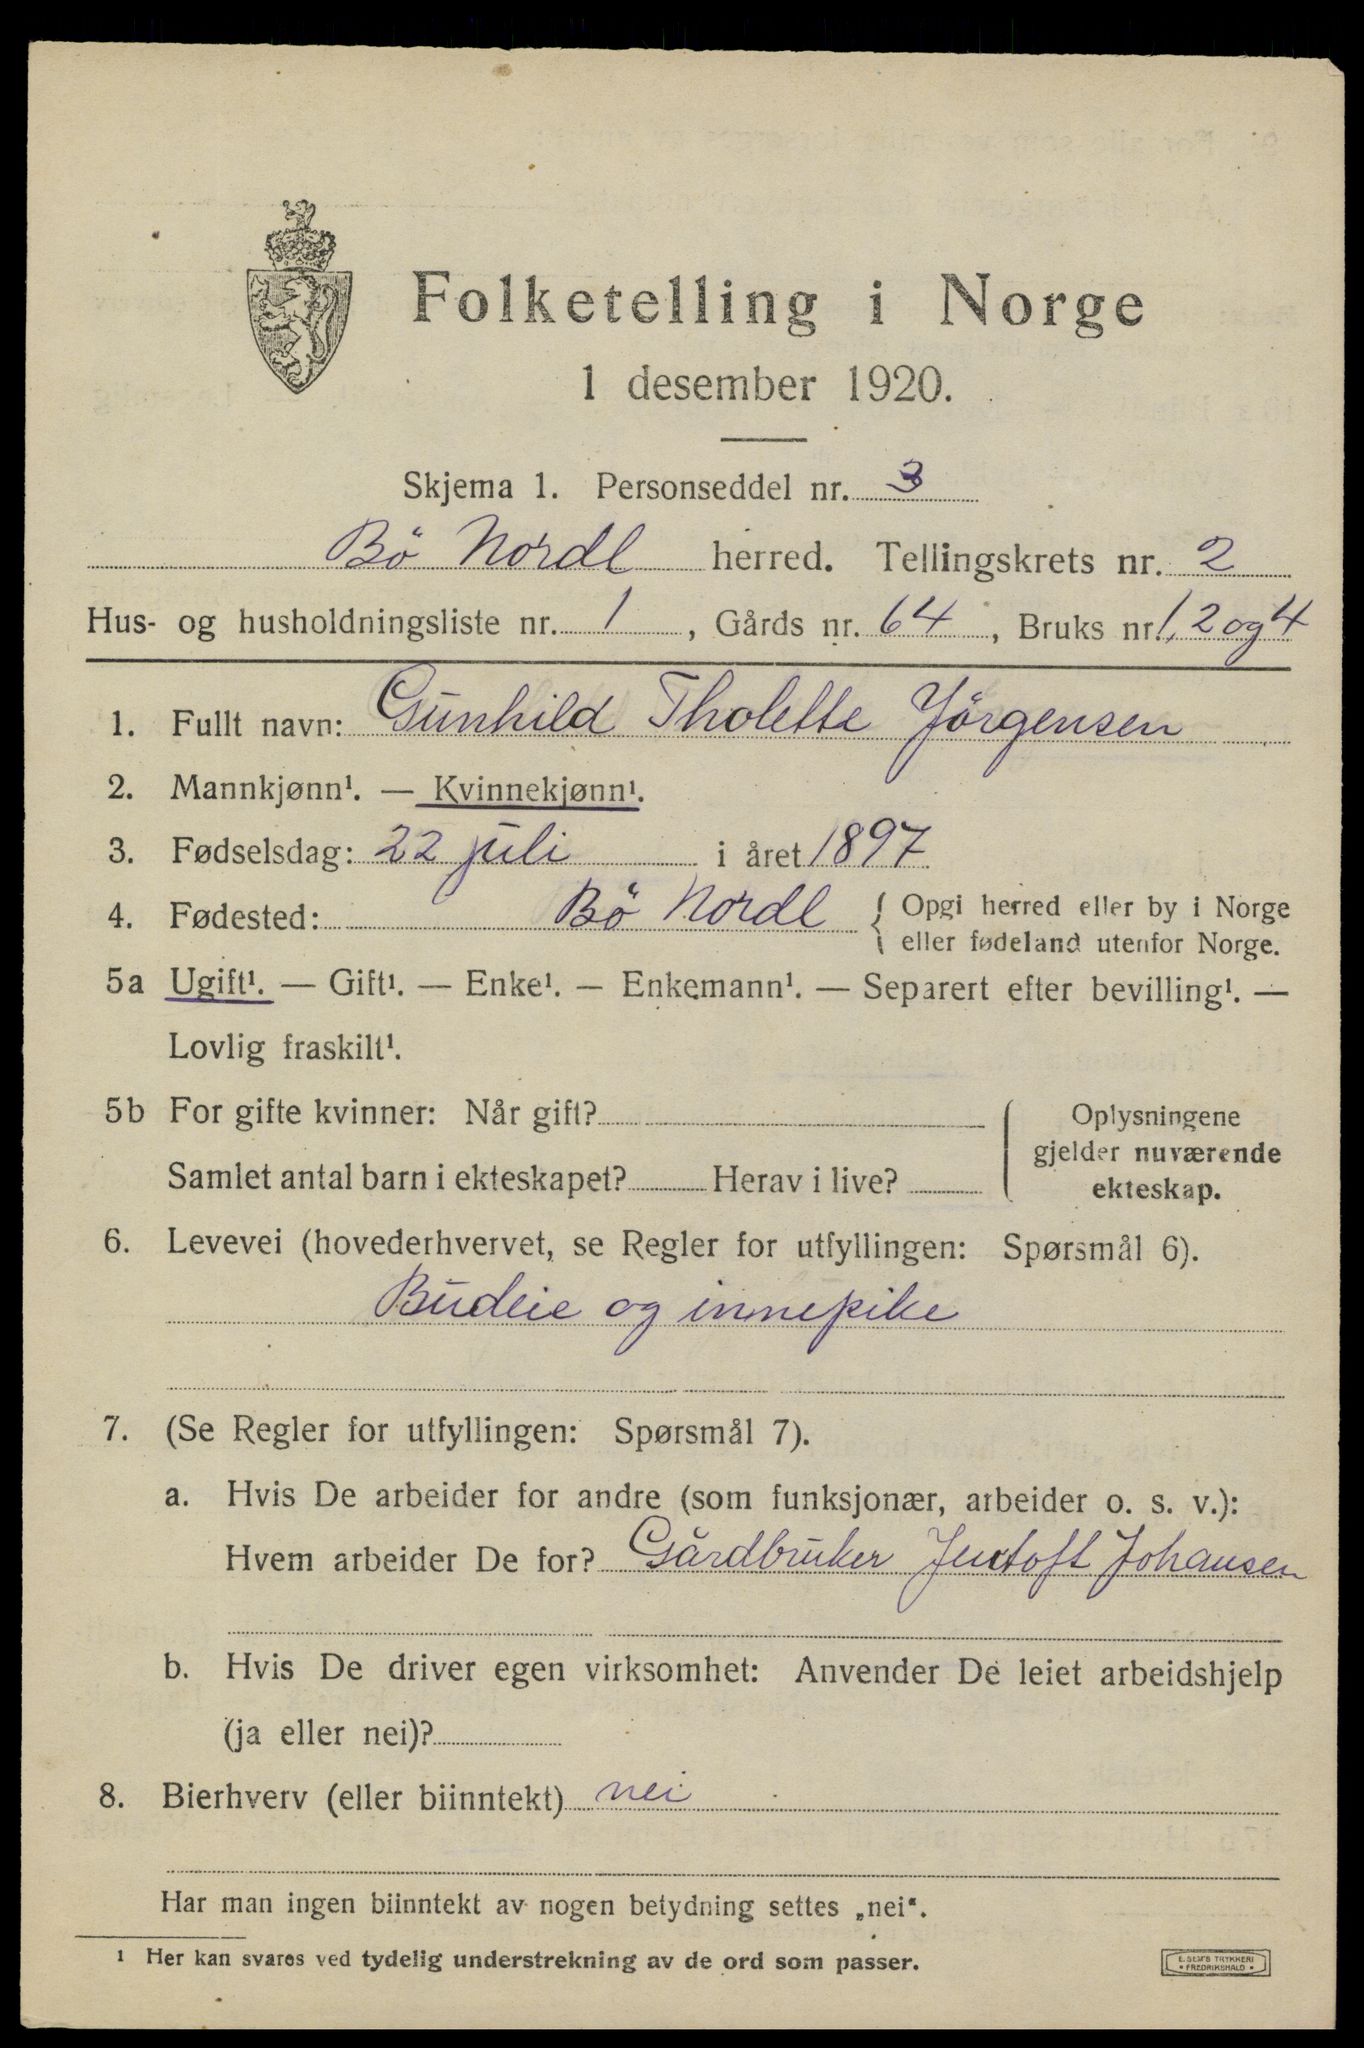 Folketelling i Norge
1 desember 1920.
Skjema 1. Personseddel nr. 3
Bö Nordl herred. Tellingskrets nr. 2
Hus- og husholdningsliste nr. 1, Gårds nr. 64, Bruks nr. 1, 2 og 4
1. Fullt navn: Gunhild Tholette Jörgensen
2. Mannkjønn¹. — Kvinnekjønn¹.
3. Fødselsdag: 22 juli i året 1897
4. Fødested: Bö Nordl { Opgi herred eller by i Norge
eller fødeland utenfor Norge.
5a Ugift¹. — Gift¹. — Enke¹. — Enkemann¹. — Separert efter bevilling¹. —
Lovlig fraskilt¹.
5b For gifte kvinner: Når gift?
Samlet antal barn i ekteskapet? Herav i live?
Oplysningene
gjelder nuværende
ekteskap.
6. Levevei (hovederhvervet, se Regler for utfyllingen: Spørsmål 6).
Budeie og innepike
7. (Se Regler for utfyllingen: Spørsmål 7).
a. Hvis De arbeider for andre (som funksjonær, arbeider o. s. v.):
Hvem arbeider De for? Gårdbruker Jentoft Johansen
b. Hvis De driver egen virksomhet: Anvender De leiet arbeidshjelp
(ja eller nei)?
8. Bierhverv (eller biinntekt) nei
Har man ingen biinntekt av nogen betydning settes „nei“.
¹ Her kan svares ved tydelig understrekning av de ord som passer.
E. SEM'S TRYKKERI
* FREDRIKSHALD *